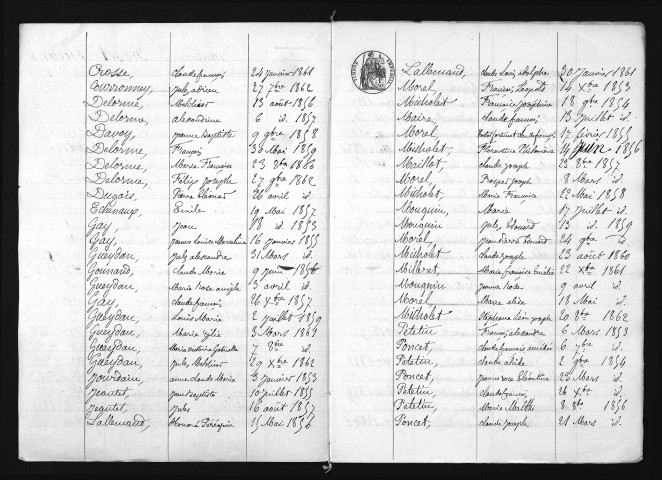 Crosse, claude françois 24 janvier 1861
Courvonney, jule, adrien 27 7bre 1862
Delorme, Melchior 13 août 1856
Delorme, alexandrine 6 id. 1857
Davoy, jeanne Baptiste 9 9bre 1858
Delorme, François 30 Mai 1859
Delorme, Marie Francine 23 8bre 1860
Delorme, Félix joseph 27 9bre 1862
Dugois, Pierre Eléonor 26 avril id.
Echenaux, Emile 19 Mai 1857
Gay, jean 18 id. 1853
Gay, jeanne Louise 16 janvier 1855
Gueydan, jule alexandre 31 Mars id.
Gonnand, claude Marie 9 juin 1856
Gueydan, Marie Rose angèle 13 avril id.
Gay, claude françois 26 Xbre 1857
Gueydan, Louis Marie 2 juillet 1859
Gueydan, Marie 3 Mars 1861
Gueydan, Marie victoire Gabrielle 7 8bre id.
Gueydan, jule, Melchior 29 Xbre 1862
Jourdain, anne claude Marie 3 janvier 1853
Jeantet, jean Baptiste 10 juillet 1855
Jeantet, jules 16 août 1857
Lallemand, Honoré Pérégrin 15 Mai 1856
Lallemand, claude Louis adolphe 30 janvier 1861
Morel, François Léopold 14 Xbre 1853
Micholet, Francine joséphine 18 9bre 1854
Maire, claude françois 13 juillet id.
Morel, claude françois 17 février 1855
Micholet, Florentine Philomène 14 juin 1856
Maillet, claude joseph 23 8bre 1857
Morel, Prosper joseph 8 Mars id.
Micholet, Marie Francine 22 Mai 1858
Mougnin, Marie 17 juillet id.
Mougnin, jule, Edouard 13 id. 1859
Morel, Edouard 24 9bre id.
Micholet, claude joseph 23 août 1860
Milleret, Marie françoise Emilie 22 Xbre 1861
Mougnin, jeanne Rose 9 avril id.
Morel, Marie alice 18 Mai id.
Micholet, Stéphane Léon joseph 20 8bre 1862
Petetin, François alexandre 6 Mars 1853
Poncet, claude françois 6 7bre id.
Petetin, claude alcide 2 9bre 1854
Poncet, jeanne rose Clémentine 23 Mars id.
Petetin, claude françois 26 Xbre id.
Petetin, Marie Marthe 8 8bre 1856
Poncet, claude joseph 21 Mars id.